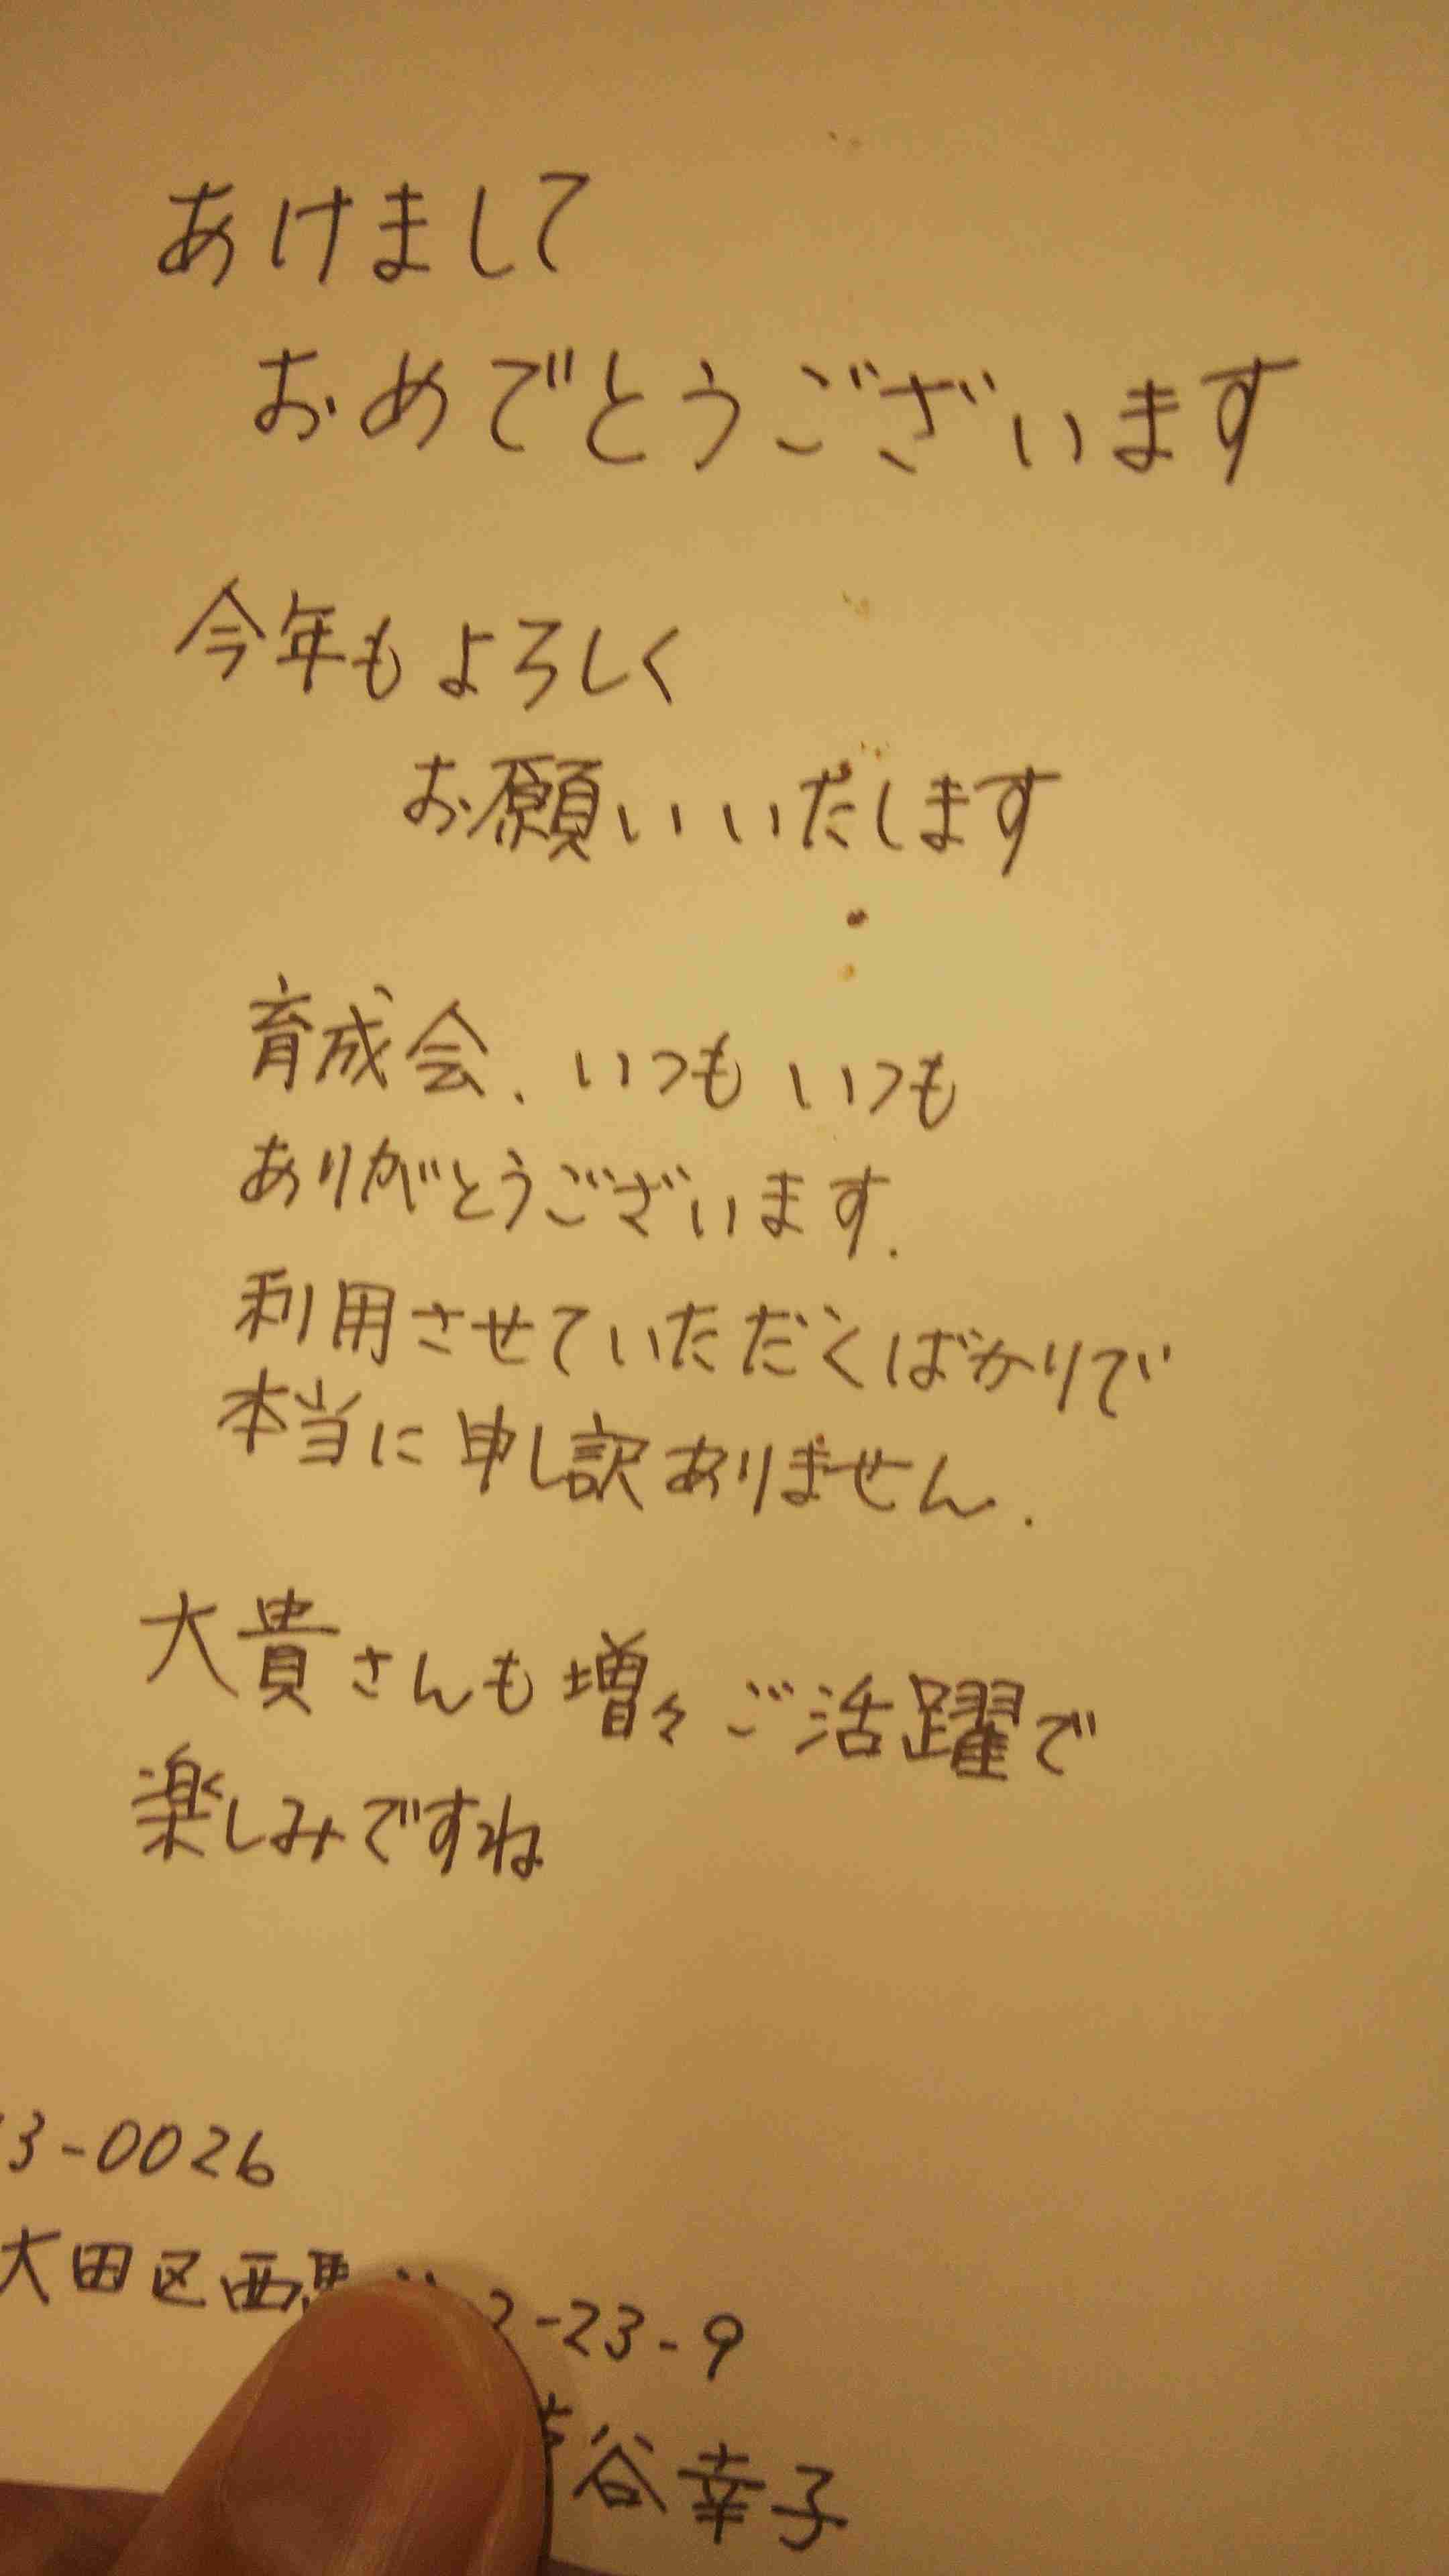 あけまして
おめでとうございます
今年もよろしく
お願いいたします
育成会、いつもいつも
ありがとうございます.
利用させていただくばかりで
本当に申し訳ありません.
大貴さんも増々ご活躍で
楽しみですね
3-0026
大田区西 2-23-9
谷幸子